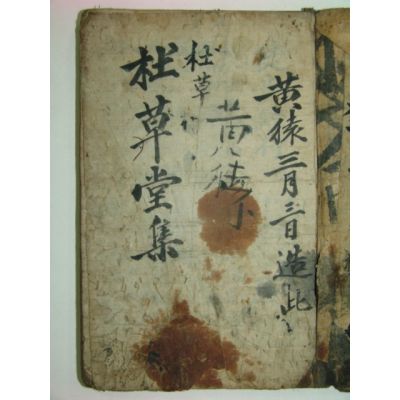 黄猿三月三日造此
黄猿
杜草
杜草堂集